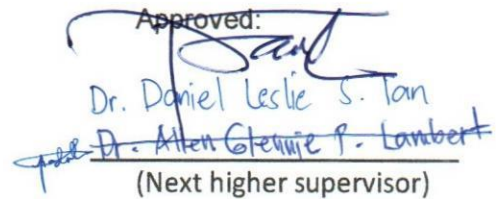 Approved:
Dr. Daniel Leslie S. Tan
Dr. Allen Glennie P. Lambert
(Next higher supervisor)